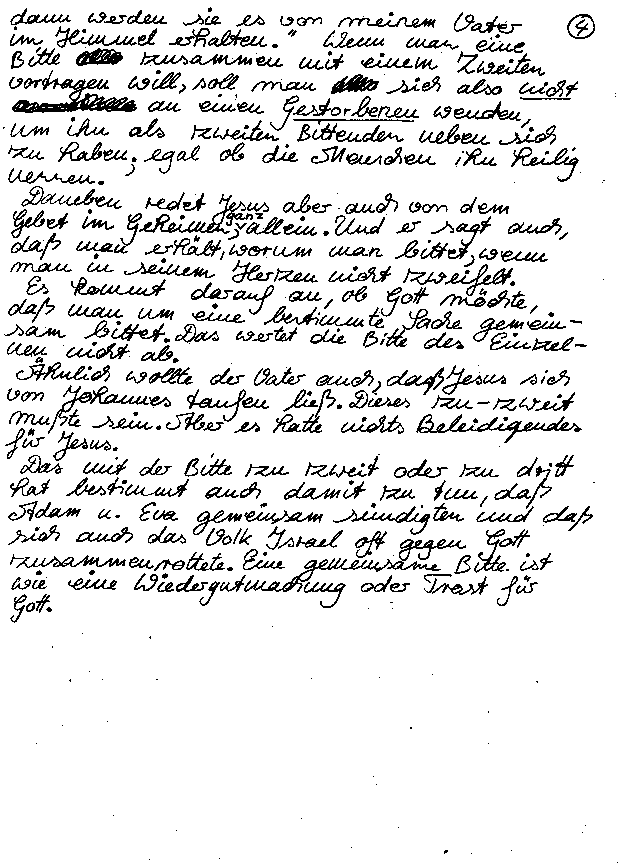 dann werden sie es von meinem Vater ④
im Himmel erhalten." Wenn man eine
Bitte zusammen mit einem Zweiten
vortragen will, soll man sich also nicht
an einen Gestorbenen wenden,
um ihn als zweiten Bittenden neben sich
zu haben, egal ob die Menschen ihn heilig
nennen.
Daneben redet Jesus aber auch von dem
Gebet im Geheimen, ganz allein. Und er sagt auch,
daß man erhält, worum man bittet, wenn
man in seinem Herzen nicht zweifelt.
Es kommt darauf an, ob Gott möchte,
daß man um eine bestimmte Sache gemein-
sam bittet. Das wertet die Bitte des Einzel-
nen nicht ab.
Ähnlich wollte der Vater auch, daß Jesus sich
von Johannes taufen ließ. Dieses zu-zweit
mußte sein. Aber es hatte nichts Beleidigendes
für Jesus.
Das mit der Bitte zu zweit oder zu dritt
hat bestimmt auch damit zu tun, daß
Adam u. Eva gemeinsam sündigten und daß
sich auch das Volk Israel oft gegen Gott
zusammenrottete. Eine gemeinsame Bitte ist
wie eine Wiedergutmachung oder Trost für
Gott.